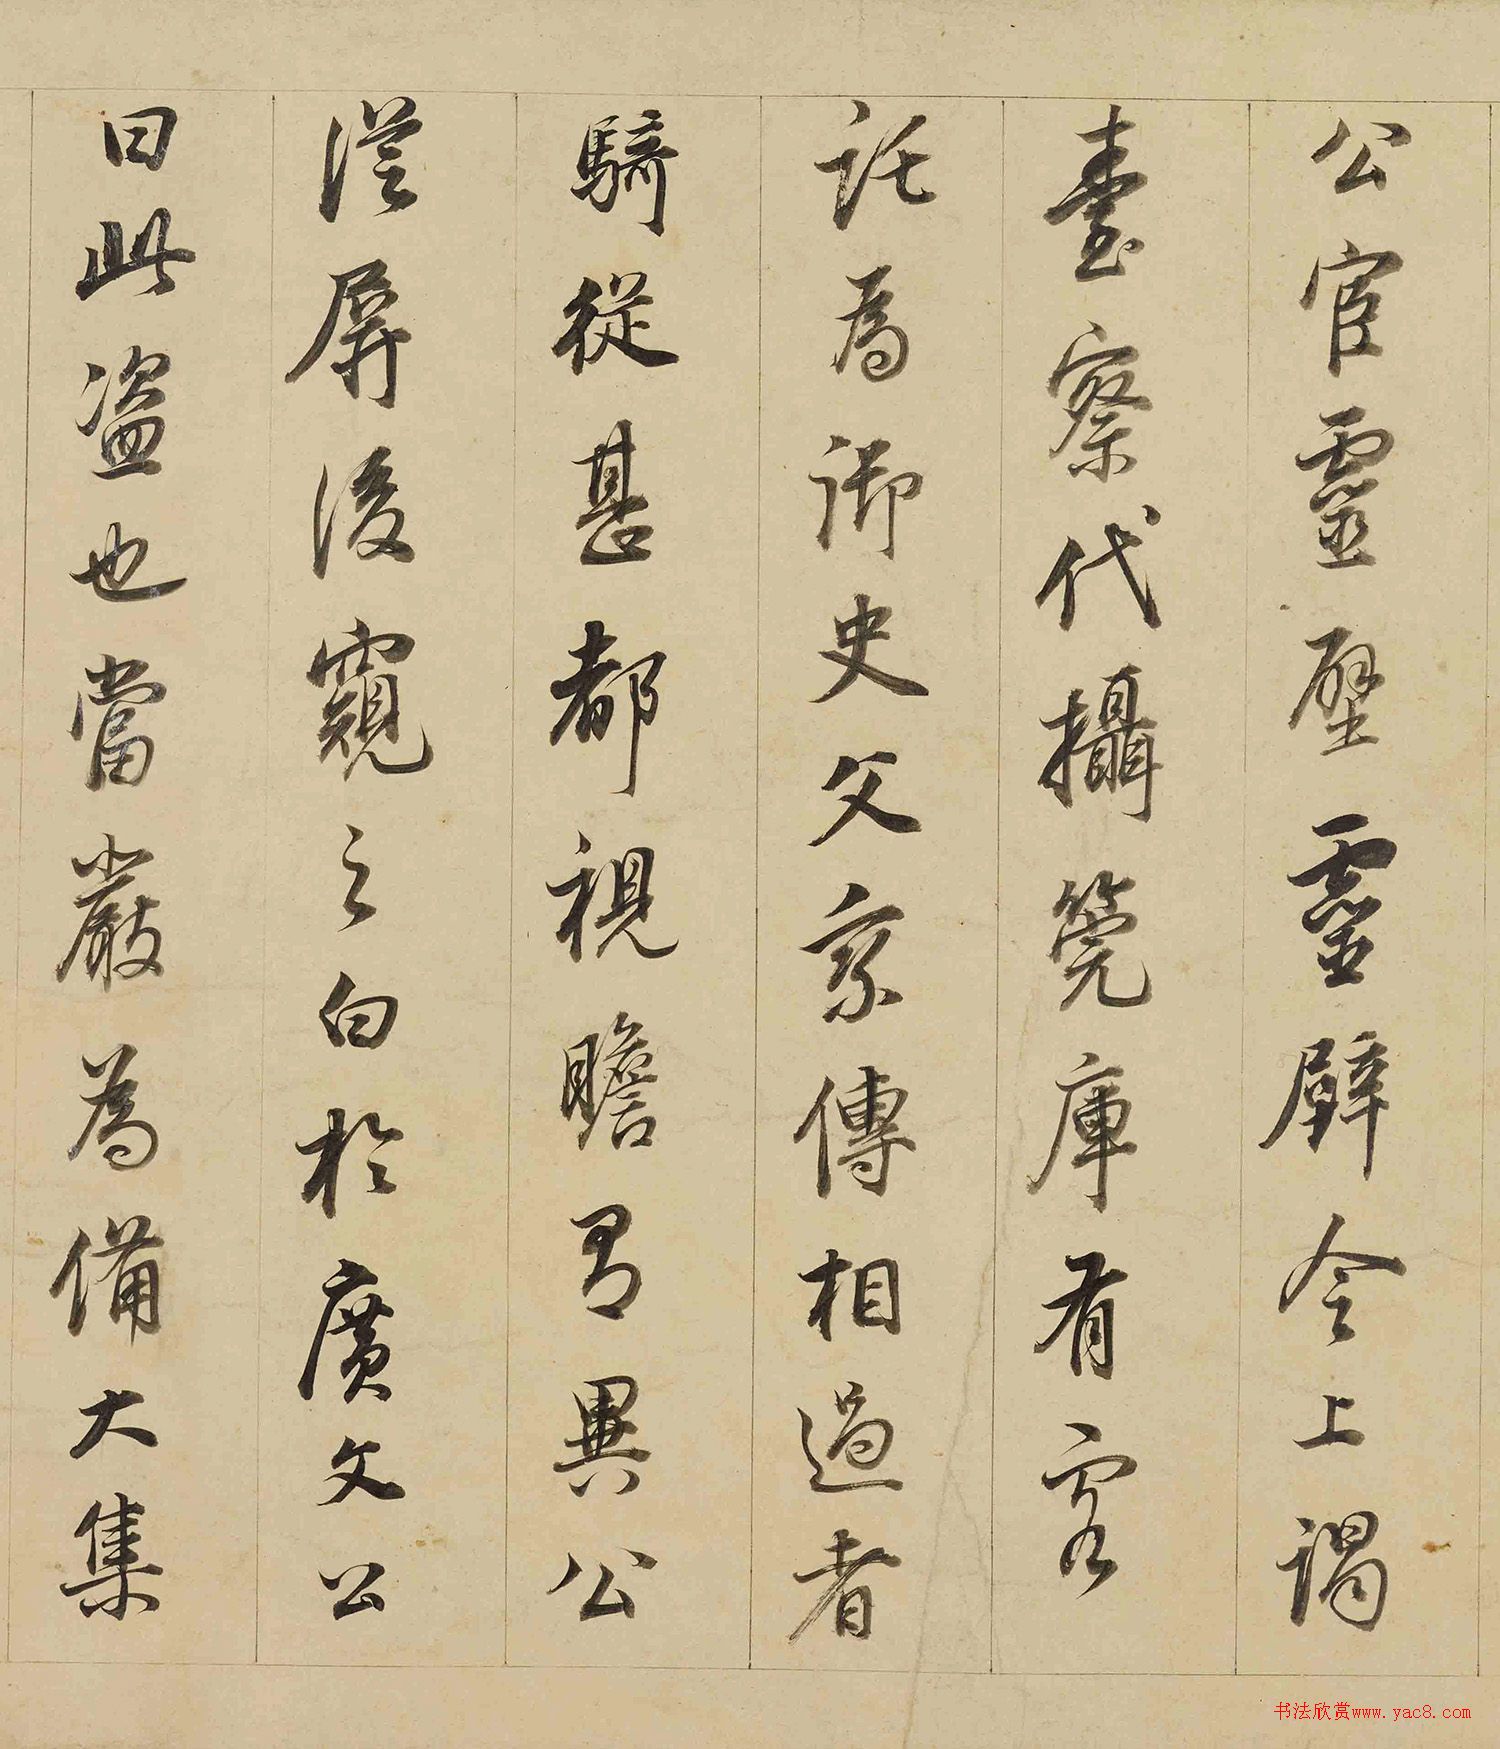 公官靈壁靈辟令上謁
臺察代攝筦庫有客
託為御史父京傳相過者
騎從甚都視瞻有異公
從屏後窺之白於廣文公
曰此盜也當嚴為備大集
书法欣赏www.yac8.com